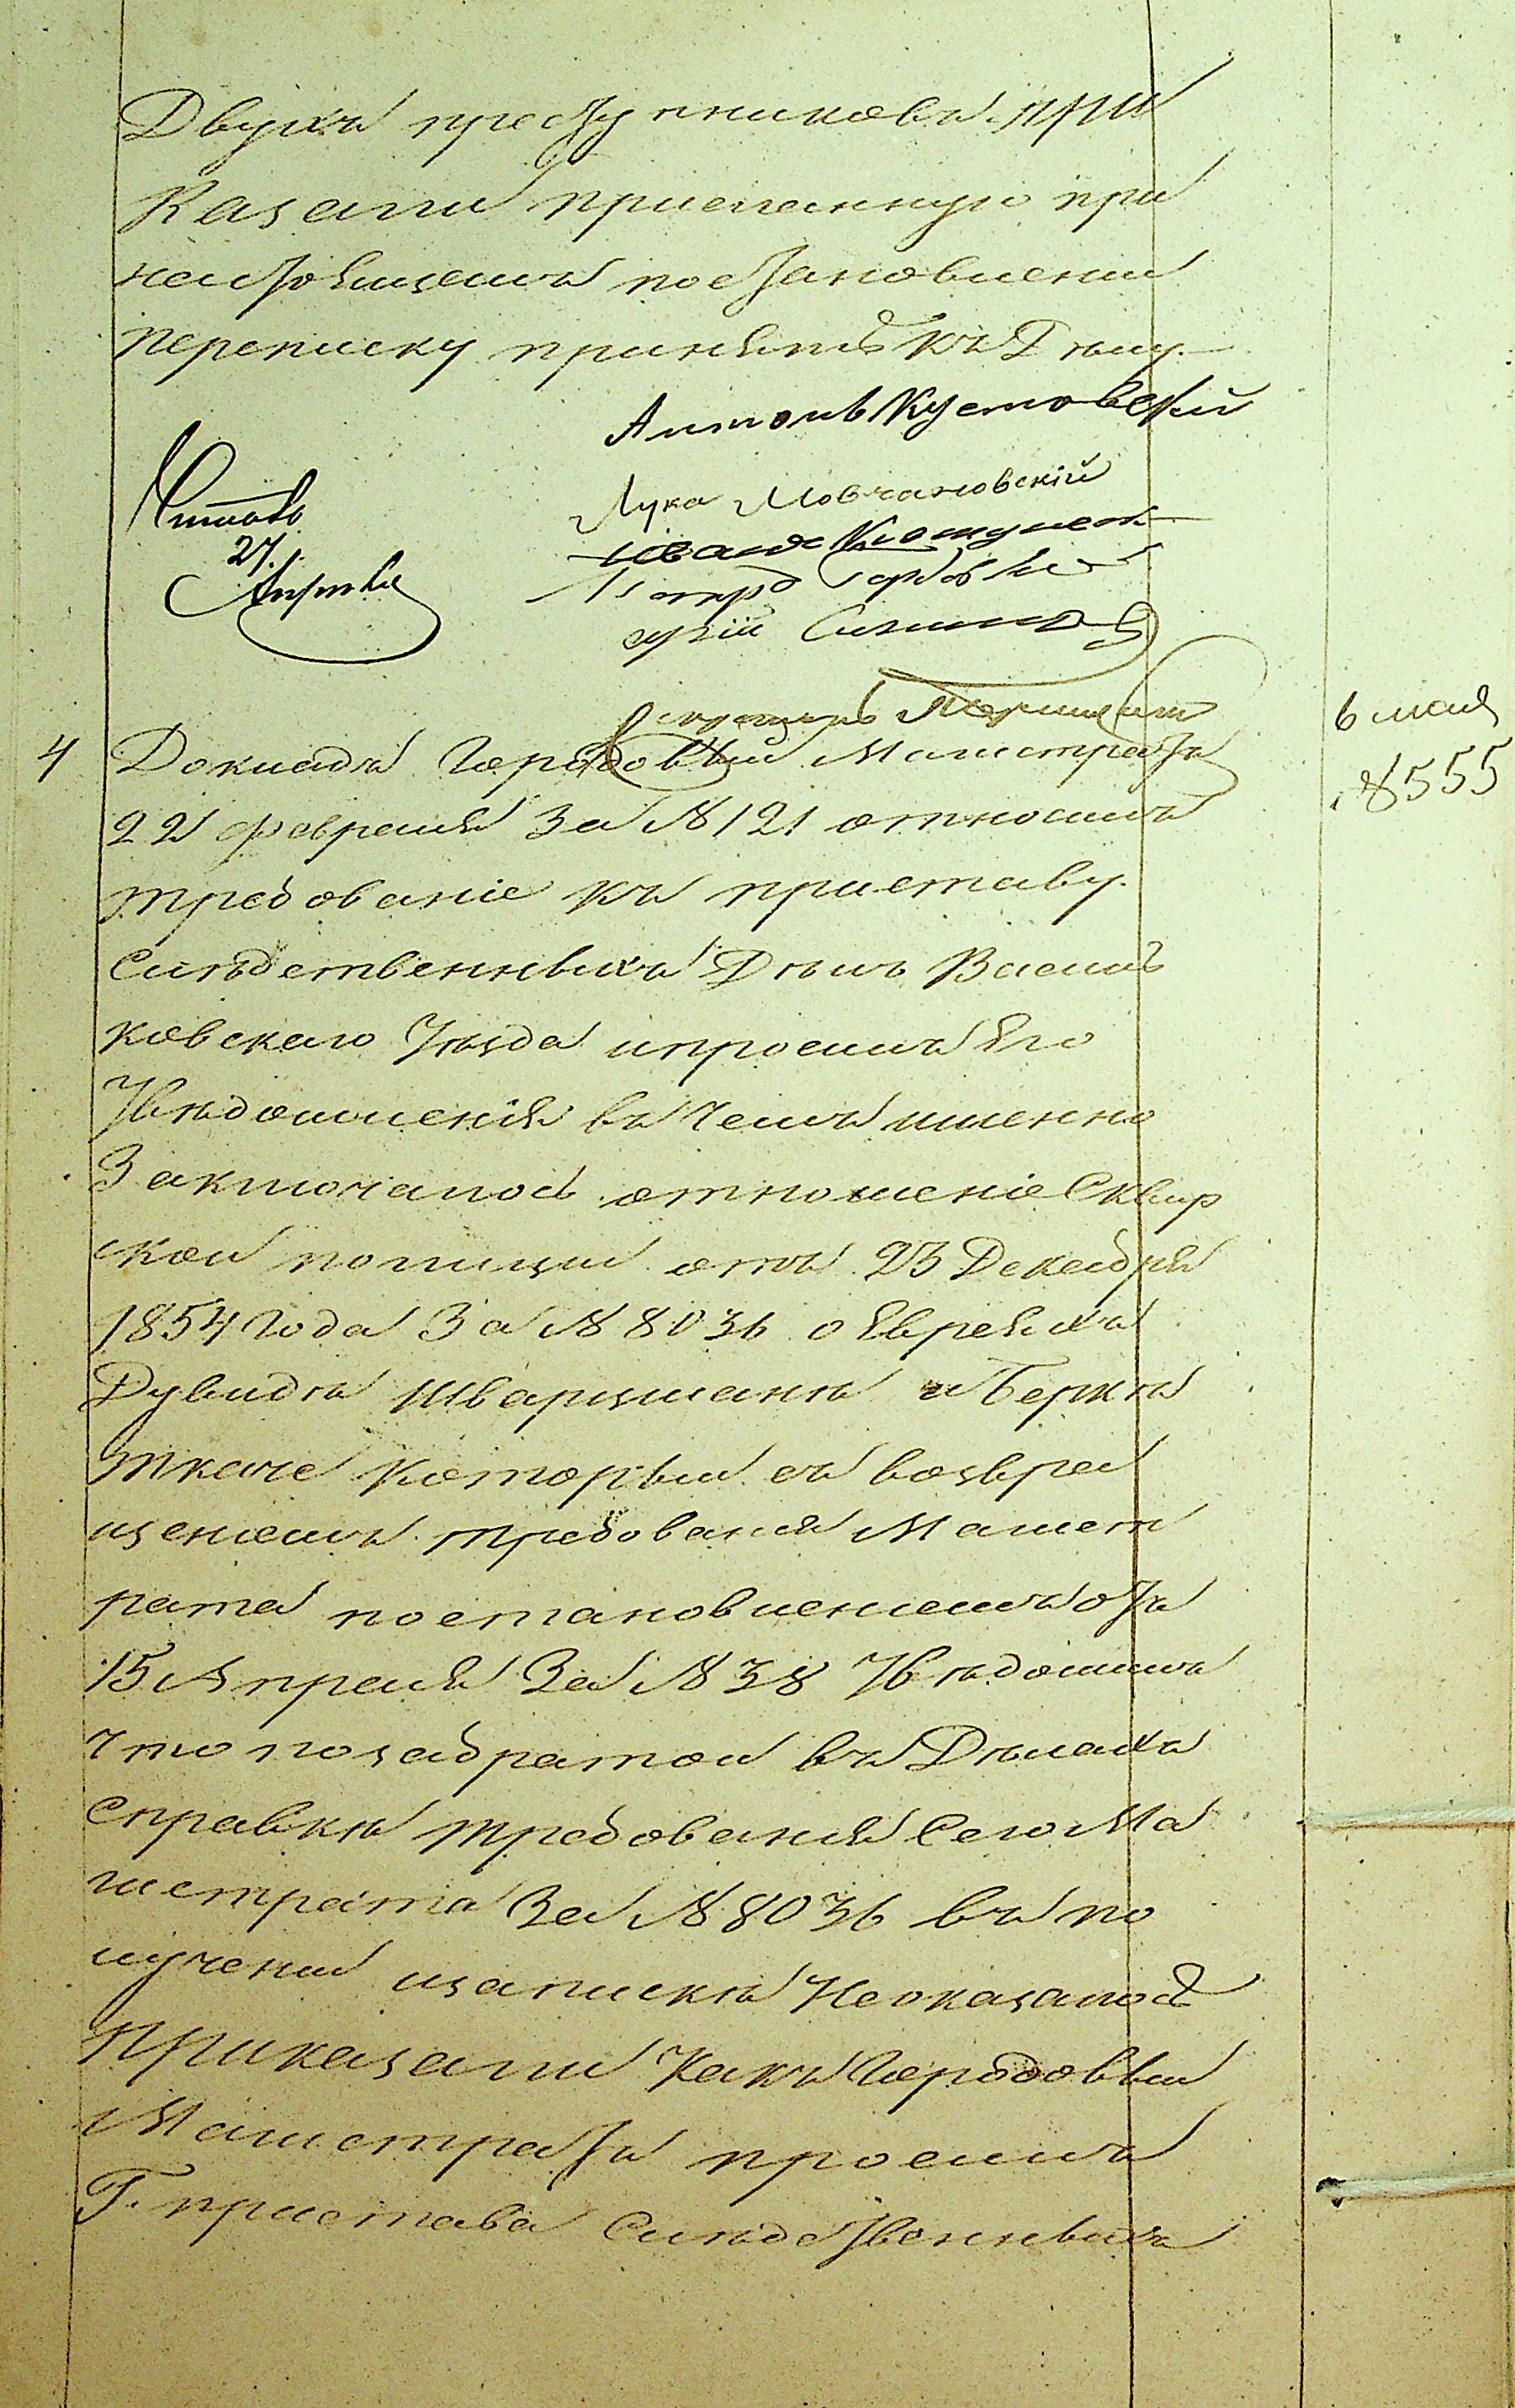 Двухъ преступниковъ при
казали приеланную при
настоящемъ постановлении
переписку принять къ Дѣлу.
Антонъ Кустовский
Читалъ
Лука Мовчановскій
27.
Апрѣля
Секретарь
4 Докладъ Городовый Магистратъ
6 мая
№555
22 февраля За №121 относилъ
требованіе къ приставу
Слѣдственныхъ Дѣлъ Василь
ковскаго Уѣзда и просилъ Его
Увѣдомленія въ Чемъ именно
Заключалось отношеніе Сквир
ской полиции отъ 23 Декабря
1854 года За №8036 о Евреяхъ
Дувидѣ Шварцманѣ и Беркѣ
Ткаче который съ возвра
щениемъ требования Магист
рата постановлениемъ отъ
15 Апреля За №38 Увѣдомилъ
что по забратой въ Дѣлахъ
Справкѣ требования Сего Ма
гистрата За №8036 въ по
лучении изапискѣ Неоказалось
Приказали Какъ Городовый
Магистратъ просилъ
Г. пристава Слѣдственныхъ